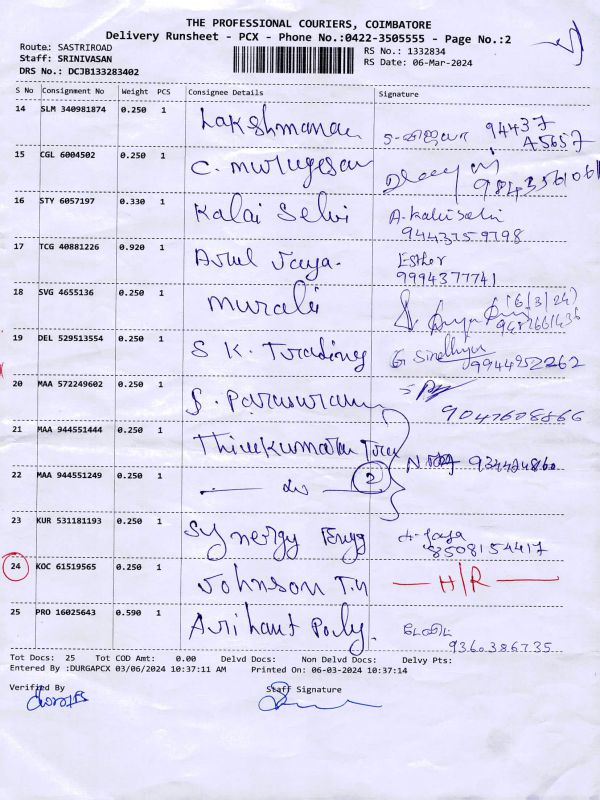 THE PROFESSIONAL COURIERS, COIMBATORE
Delivery Runsheet - PCX - Phone No.:0422-3505555 - Page No.:2
Route: SASTRIROAD
RS No.: 1332834
Staff: SRINIVASAN
RS Date: 06-Mar-2024
DRS No.: DCJB133283402
S No Consignment No Weight PCS Consignee Details Signature
14 SLM 340981874 0.250 1 Lakshmanan 94437
A5657
15 CGL 6004502 0.250 1 C. Murugesan
16 STY 6057197 0.330 1 Kalai Selvi A. Kalai Selvi
17 TCG 40881226 0.920 1 Arul Jaya. Esther
9994377741
18 SVG 4655136 0.250 1 murali (6/3/24)
19 DEL 529513554 0.250 1 S K. Trading G Sindhya
9944952262
20 MAA 572249602 0.250 1 S. Parasuram
9047608866
21 MAA 944551444 0.250 1 Thirukumaran
22 MAA 944551249 0.250 1 — do — 2
23 KUR 531181193 0.250 1 Synergy Engg A. Jaya
8508154417
24 KOC 61519565 0.250 1 Johnson T.N — H/R —
25 PRO 16025643 0.590 1 Arihant Poly.
9360386735
Tot Docs: 25 Tot COD Amt: 0.00 Delvd Docs: Non Delvd Docs: Delvy Pts:
Entered By :DURGAPCX 03/06/2024 10:37:11 AM Printed On: 06-03-2024 10:37:14
Verified By Staff Signature